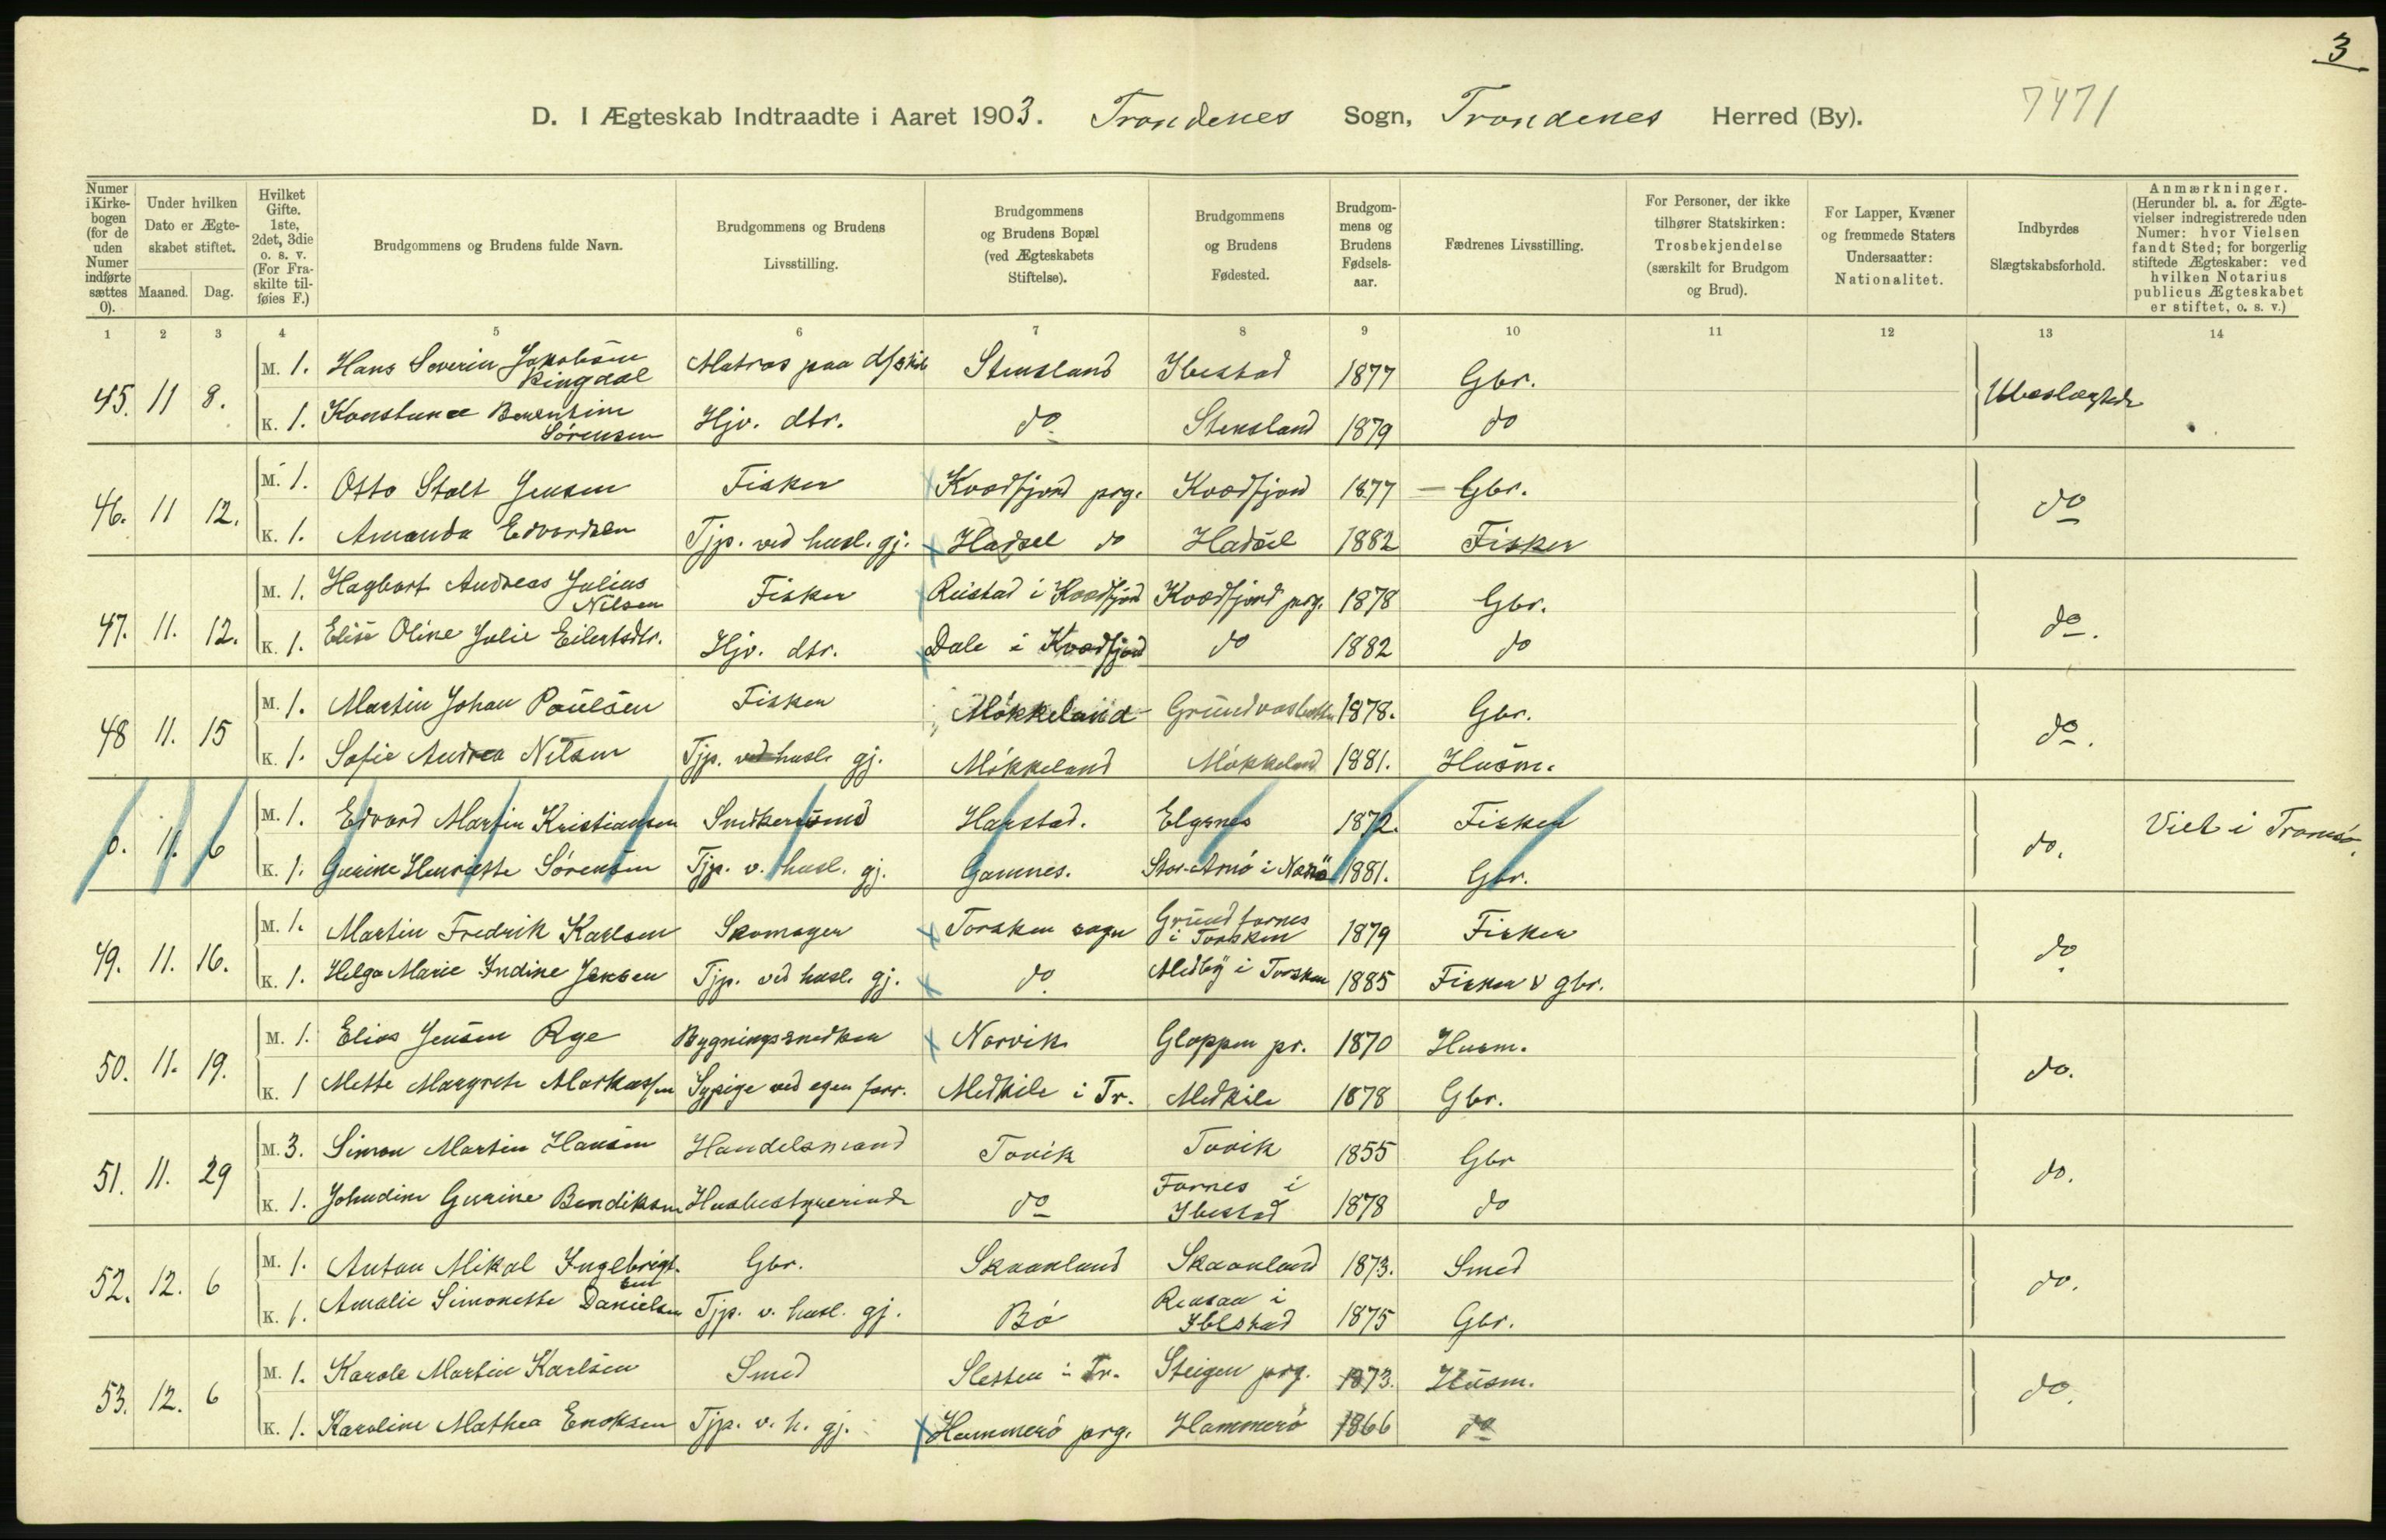 3
D. I Ægteskab Indtraadte i Aaret 1903. Trondenes Sogn, Trondenes Herred (By). 7471
Numer i Kirkebogen (for de uden Numer indførte sættes 0).
Under hvilken Dato er Ægteskabet stiftet.
Maaned. Dag.
Hvilket Gifte. 1ste, 2det, 3die o. s. v. (For Fraskilte tilføies F.)
Brudgommens og Brudens fulde Navn.
Brudgommens og Brudens Livsstilling.
Brudgommens og Brudens Bopæl (ved Ægteskabets Stiftelse).
Brudgommens og Brudens Fødested.
Brudgommens og Brudens Fødselsaar.
Fædrenes Livsstilling.
For Personer, der ikke tilhører Statskirken: Trosbekjendelse (særskilt for Brudgom og Brud).
For Lapper, Kvæner og fremmede Staters Undersaatter: Nationalitet.
Indbyrdes Slægtskabsforhold.
Anmærkninger. (Herunder bl. a. for Ægtevielser indregistrerede uden Numer: hvor Vielsen fandt Sted; for borgerlig stiftede Ægteskaber: ved hvilken Notarius publicus Ægteskabet er stiftet, o. s. v.)
1 2 3 4 5 6 7 8 9 10 11 12 13 14
45. 11 8. M. 1. Hans Severin Jakobsen Ringdal Matros paa d/skib Stensland Ibestad 1877 Gbr. Ubeslægtede
K. 1. Konstance Berentine Sørensen Hjv. dtr. do Stensland 1879 do
46. 11 12. M. 1. Otto Stolt Jensen Fisker Kvædfjord prg. Kvædfjord 1877 – Gbr. do
K. 1. Amanda Edvardsen Tjp. ved husl. gj. Hadsel do Hadsel 1882 Fisker
47. 11. 12. M. 1. Hagbart Andreas Julius Nilsen Fisker Rustad i Kvædfjord Kvædfjord prg. 1878 Gbr. do.
K. 1. Elise Oline Julie Eilertsdtr. Hjv. dtr. Dale i Kvædfjord do 1882 do
48 11. 15 M. 1. Martin Johan Poulsen Fisker Møkkeland 1878. Gbr. do.
K. 1. Sofie Andrea Nilsen Tjp. ved husl. gj. Møkkeland Møkkeland 1881. Husm.
0. 11. 6 M. 1. Edvard Martin Kristiansen Snedkersvend Harstad. Elgsnes 1872. Fisker do. Viet i Tromsø.
K. 1. Gurine Henriette Sørensen Tjp. v. husl. gj. Gamnes. 1881. Gbr.
49. 11. 16. M. 1. Martin Fredrik Karlsen Skomager Torsken sogn Grundfarnes i Torsken 1879 Fisker do
K. 1. Helga Marie Indine Jensen Tjp. ved husl. gj. do Medby i Torsken 1885 Fisker & gbr.
50. 11. 19. M. 1. Elias Jensen Rye Bygningssnedker Narvik Gloppen pr. 1870 Husm. do.
K. 1 Mette Margrete Markussen Sypige ved egen forr. Medkile i Tr. Medkile 1878 Gbr.
51. 11. 29 M. 3. Simon Martin Hansen Handelsmand Tovik Tovik 1855 Gbr do.
K. 1. Johndine Gurine Bendiksen Husbestyrerinde do Fornes i Ibestad 1878 do
52. 12. 6 M. 1. Anton Mikal Ingebrigtsen Gbr. Skaanland Skaanland 1873. Smed do.
K. 1. Amalie Simonette Danielsen Tjp. v. husl. gj. Bø Rensaa i Ibestad 1875 Gbr.
53. 12. 6 M. 1. Karole Martin Karlsen Smed Sletten i Tr. Steigen prg. 1873. Husm. do.
K. 1. Karoline Mathea Enoksen Tjp. v. h. gj. Hammerø prg. Hammerø 1866 do